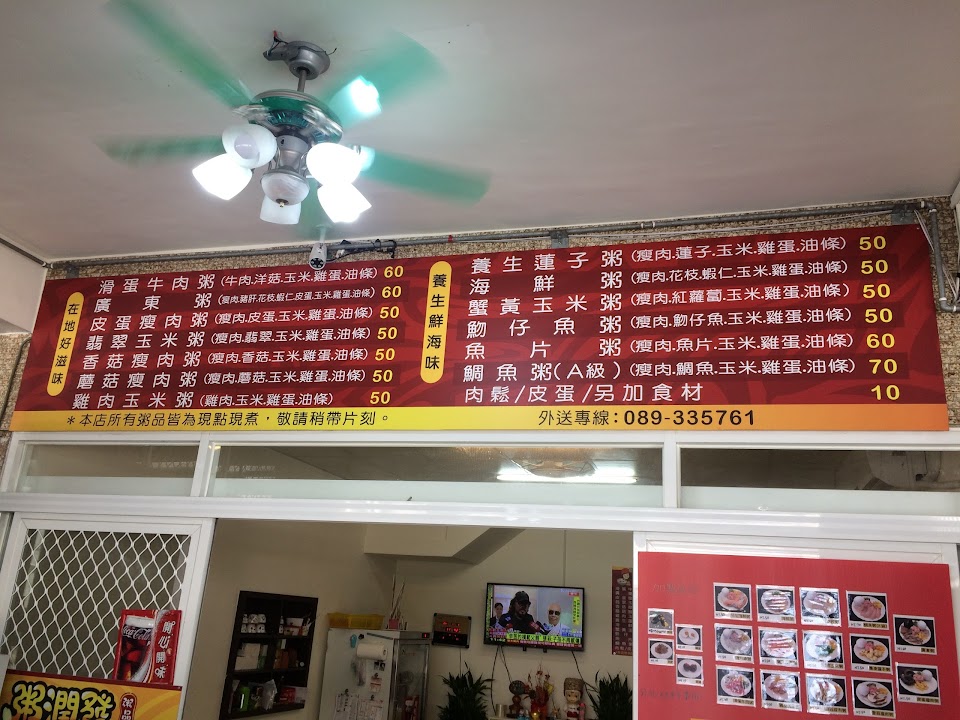 在地好滋味
滑蛋牛肉粥(牛肉.洋菇.玉米.雞蛋.油條) 60
廣東粥(瘦肉.豬肝.花枝.蝦仁.皮蛋.玉米.雞蛋.油條) 60
皮蛋瘦肉粥(瘦肉.皮蛋.玉米.雞蛋.油條) 50
翡翠玉米粥(瘦肉.翡翠.玉米.雞蛋.油條) 50
香菇瘦肉粥(瘦肉.香菇.玉米.雞蛋.油條) 50
蘑菇瘦肉粥(瘦肉.蘑菇.玉米.雞蛋.油條) 50
雞肉玉米粥(雞肉.玉米.雞蛋.油條) 50
養生鮮海味
養生蓮子粥(瘦肉.蓮子.玉米.雞蛋.油條) 50
海鮮粥(瘦肉.花枝.蝦仁.玉米.雞蛋.油條) 50
蟹黃玉米粥(瘦肉.紅蘿蔔.玉米.雞蛋.油條) 50
魩仔魚粥(瘦肉.魩仔魚.玉米.雞蛋.油條) 50
魚片粥(瘦肉.魚片.玉米.雞蛋.油條) 60
鯛魚粥(A級)(瘦肉.鯛魚.玉米.雞蛋.油條) 70
肉鬆/皮蛋/另加食材 10
＊本店所有粥品皆為現點現煮，敬請稍帶片刻。
外送專線:089-335761
Coca-Cola
開心開味
粥潤發